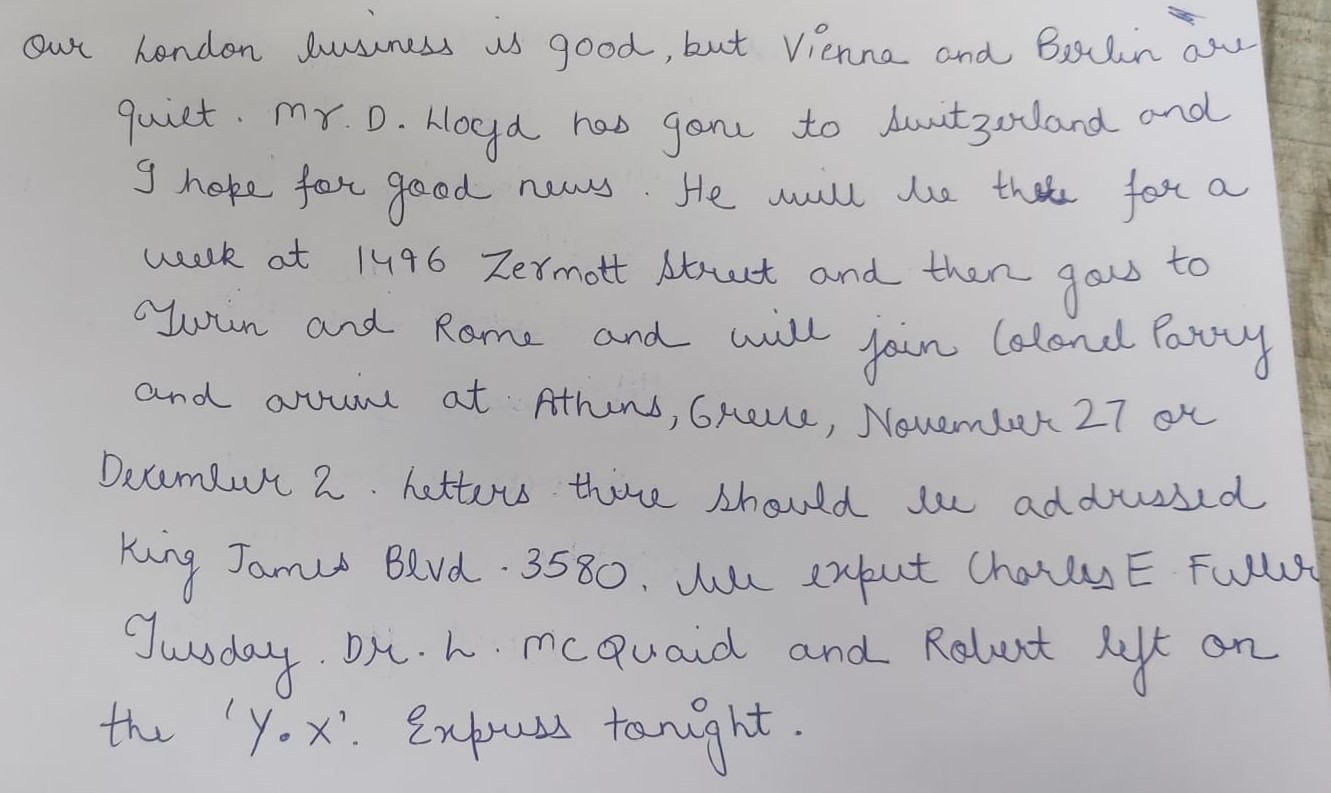 Our London business is good, but Vienna and Berlin are
quiet. Mr. D. Lloyd has gone to Switzerland and
I hope for good news. He will be there for a
week at 1496 Zermott Street and then goes to
Turin and Rome and will join Colonel Parry
and arrive at Athens, Greece, November 27 or
December 2. Letters there should be addressed
King James Blvd. 3580. We expect Charles E Fuller
Tuesday. Dr. L. McQuaid and Robert left on
the 'Y.X'. Express tonight.